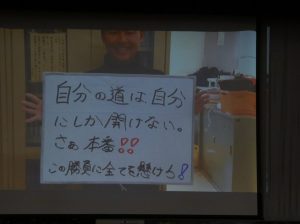 自分の道は自分
にしか開けない。
さぁ本番!!
この勝負に全てを懸けろ!